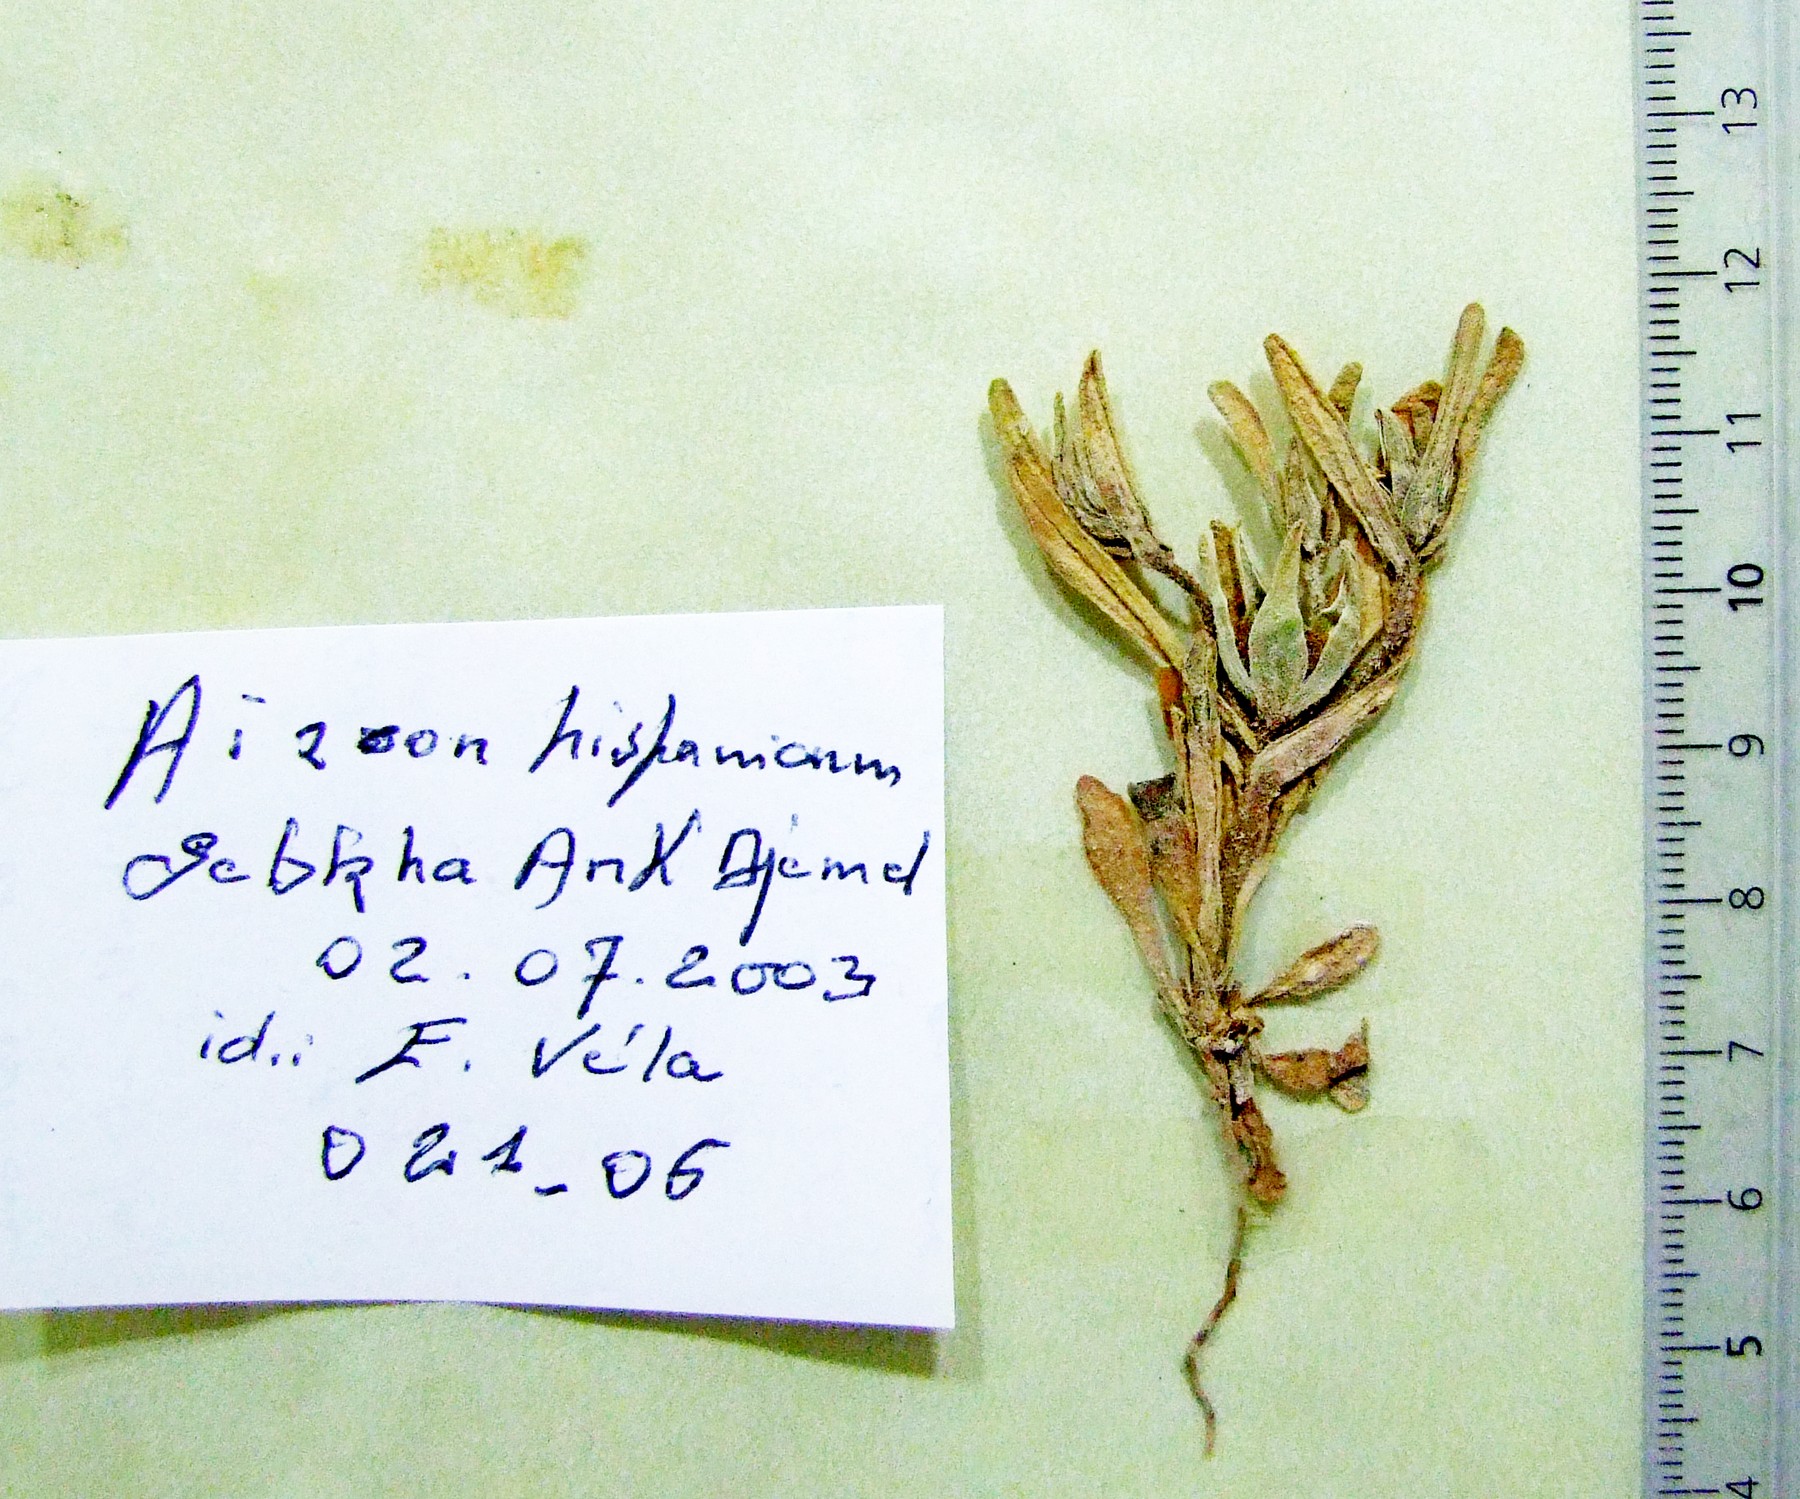 Aizoon hispanicum
Sebkha Ank Djemel
02.07.2003
id.: E. Véla
021_06
13
12
11
10
9
8
7
6
5
4